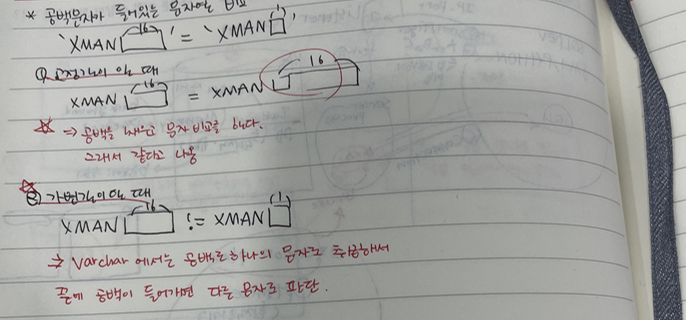 * 공백문자가 들어있는 문자에는 비교
'XMAN 16' = 'XMAN 1'
① 고정길이 일 때
XMAN 16 = XMAN 16
☆ ⇒ 공백을 채우고 문자 비교를 한다.
그래서 같다고 나옴
☆ ② 가변길이 일 때
XMAN 16 != XMAN 1
⇒ Varchar 에서는 공백도 하나의 문자로 취급해서
끝에 공백이 들어가면 다른 문자로 판단.